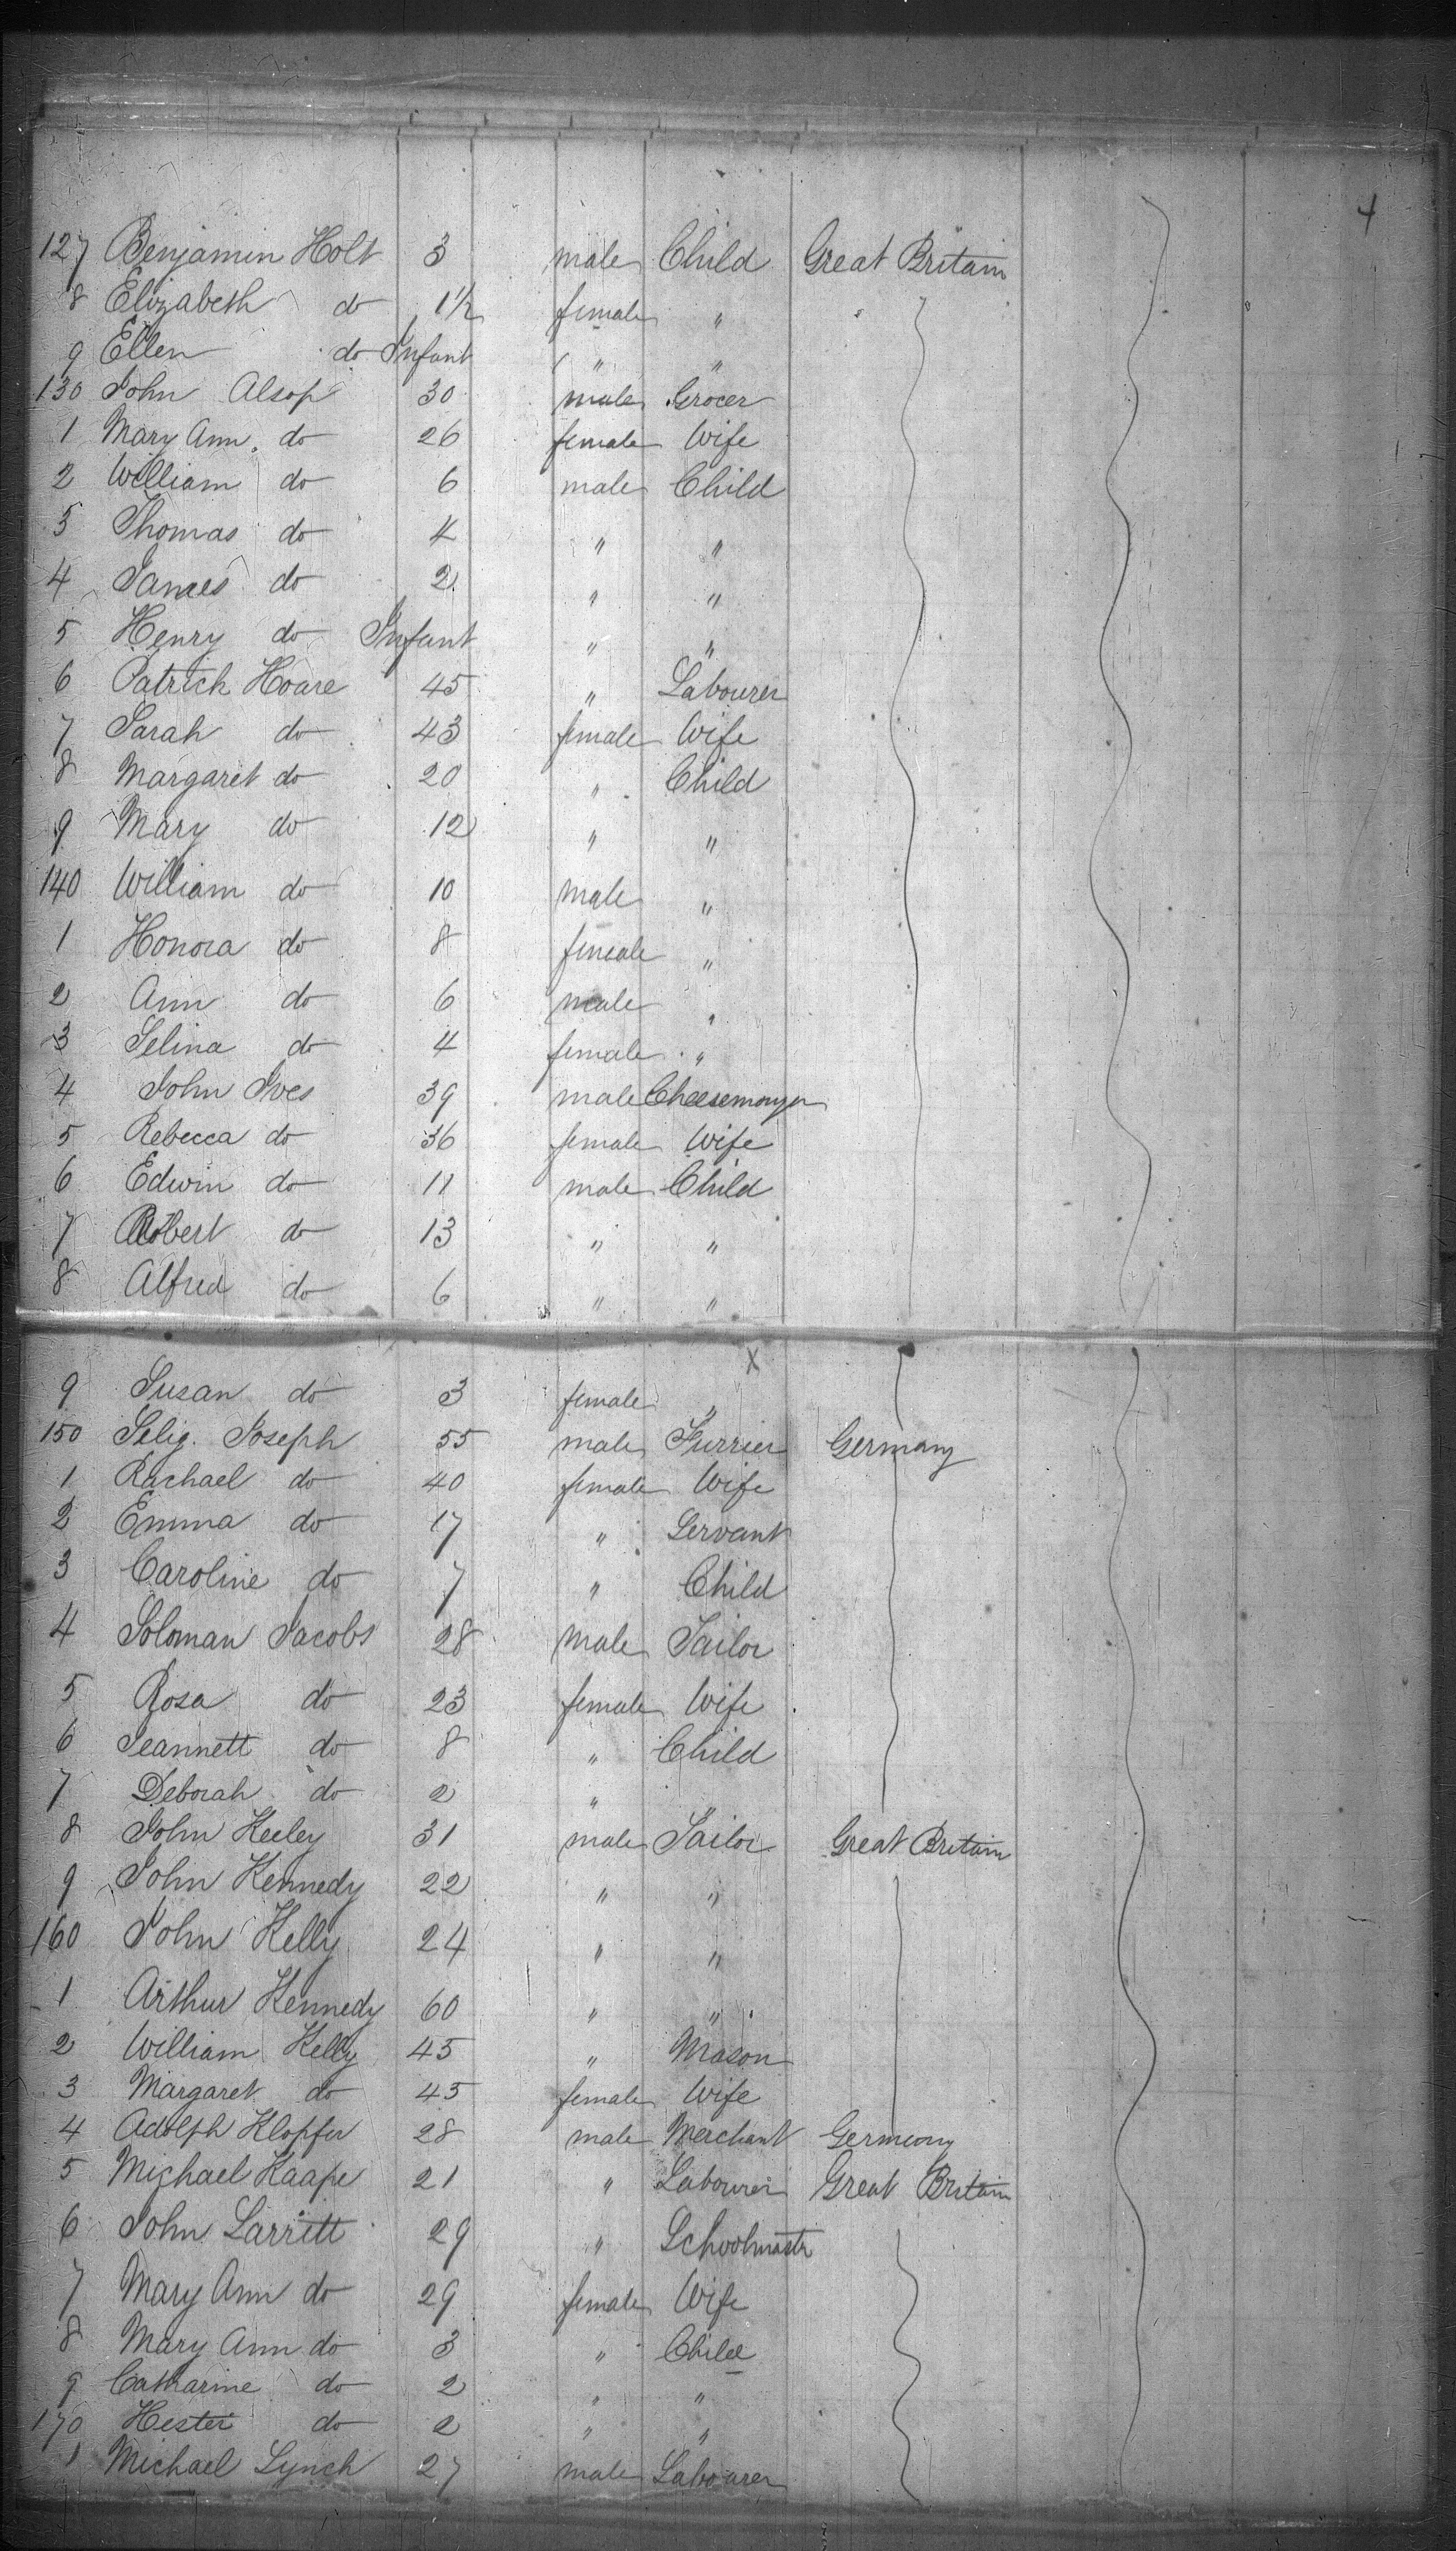 4
127 Benjamin Holt 3 male Child Great Britain
8 Elizabeth do 1½ female "
9 Ellen do Infant " "
130 John Alsop 30 male Grocer
1 Mary Ann do 26 female Wife
2 William do 6 male Child
3 Thomas do 4 " "
4 James do 2 " "
5 Henry do Infant " "
6 Patrick Hoare 45 " Labourer
7 Sarah do 43 female Wife
8 Margaret do 20 " Child
9 Mary do 12 " "
140 William do 10 male "
1 Honora do 8 female "
2 Ann do 6 male "
3 Selina do 4 female "
4 John Ives 39 male Cheesemonger
5 Rebecca do 36 female Wife
6 Edwin do 11 male Child
7 Robert do 13 " "
8 Alfred do 6 " "
X
9 Susan do 3 female "
150 Selig Joseph 55 male Furrier Germany
1 Rachael do 40 female Wife
2 Emma do 17 " Servant
3 Caroline do 7 " Child
4 Soloman Jacobs 28 male Tailor
5 Rosa do 23 female Wife
6 Jeannett do 8 " Child
7 Deborah do 2 " "
8 John Keeley 31 male Tailor Great Britain
9 John Kennedy 22 " "
160 John Kelly 24 " "
1 Arthur Kennedy 60 " "
2 William Kelly 45 " Mason
3 Margaret do 45 female Wife
4 Adolph Klopfer 28 male Merchant Germany
5 Michael Kaape 21 " Labourer Great Britain
6 John Larritt 29 " Schoolmaster
7 Mary Ann do 29 female Wife
8 Mary Ann do 3 " Child
9 Catharine do 2 " "
170 Hester do 2 " "
1 Michael Lynch 27 male Labourer